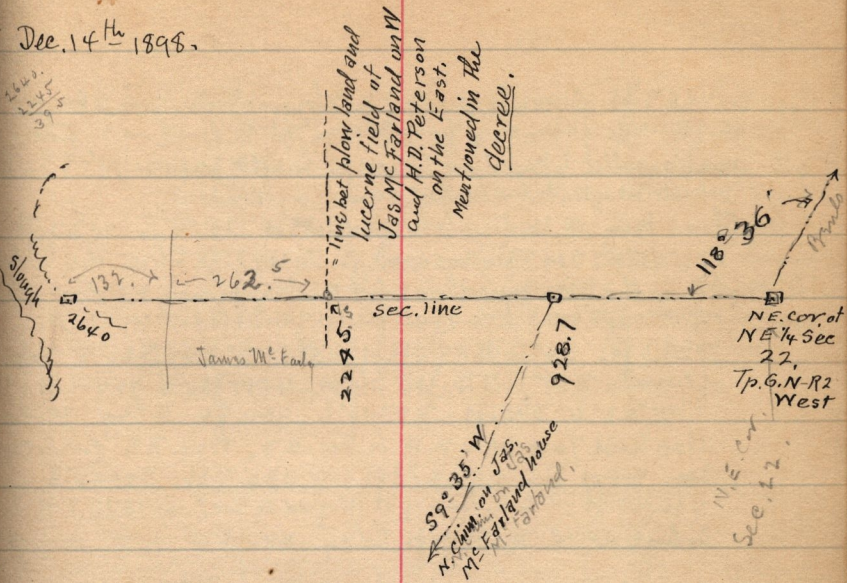 Dec. 14th 1898.
2640.
2245
395
= line bet plow land and
lucerne field of
Jas Mc Farland on W
and H.D. Peterson
on the East.
Mentioned in the
decree.
118° 36'
slough
132.
262.5
2640
sec. line
2245.5
928.7
James Mc Farl
NE. Cor. of
NE 1/4 Sec
22,
Tp. 6. N-R2
West
S9° 35' W
N. Chim. on Jas.
Mc Farland house
on Jas
Mc Farland.
N.E. Cor.
Sec. 22.